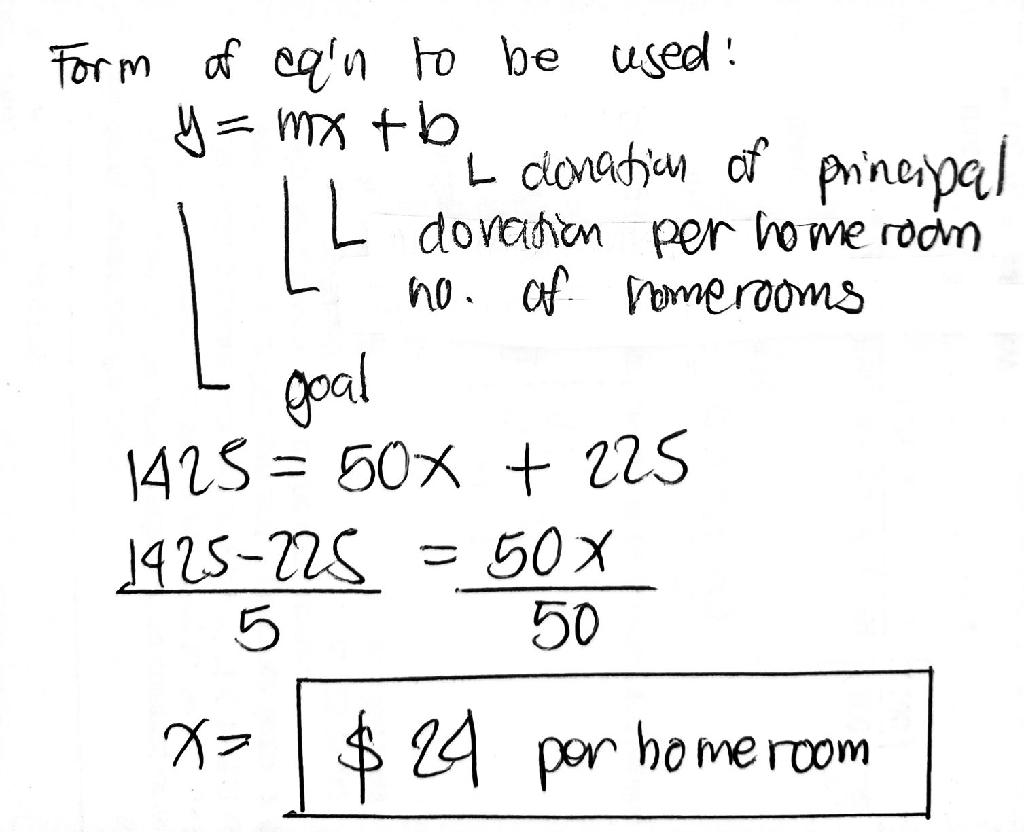 Form of eq'n to be used:
y = mx + b
donation of principal
donation per homeroom
no. of homerooms
goal
1425 = 50x + 225
1425-225 = 50x
5 50
x = $ 24 per homeroom